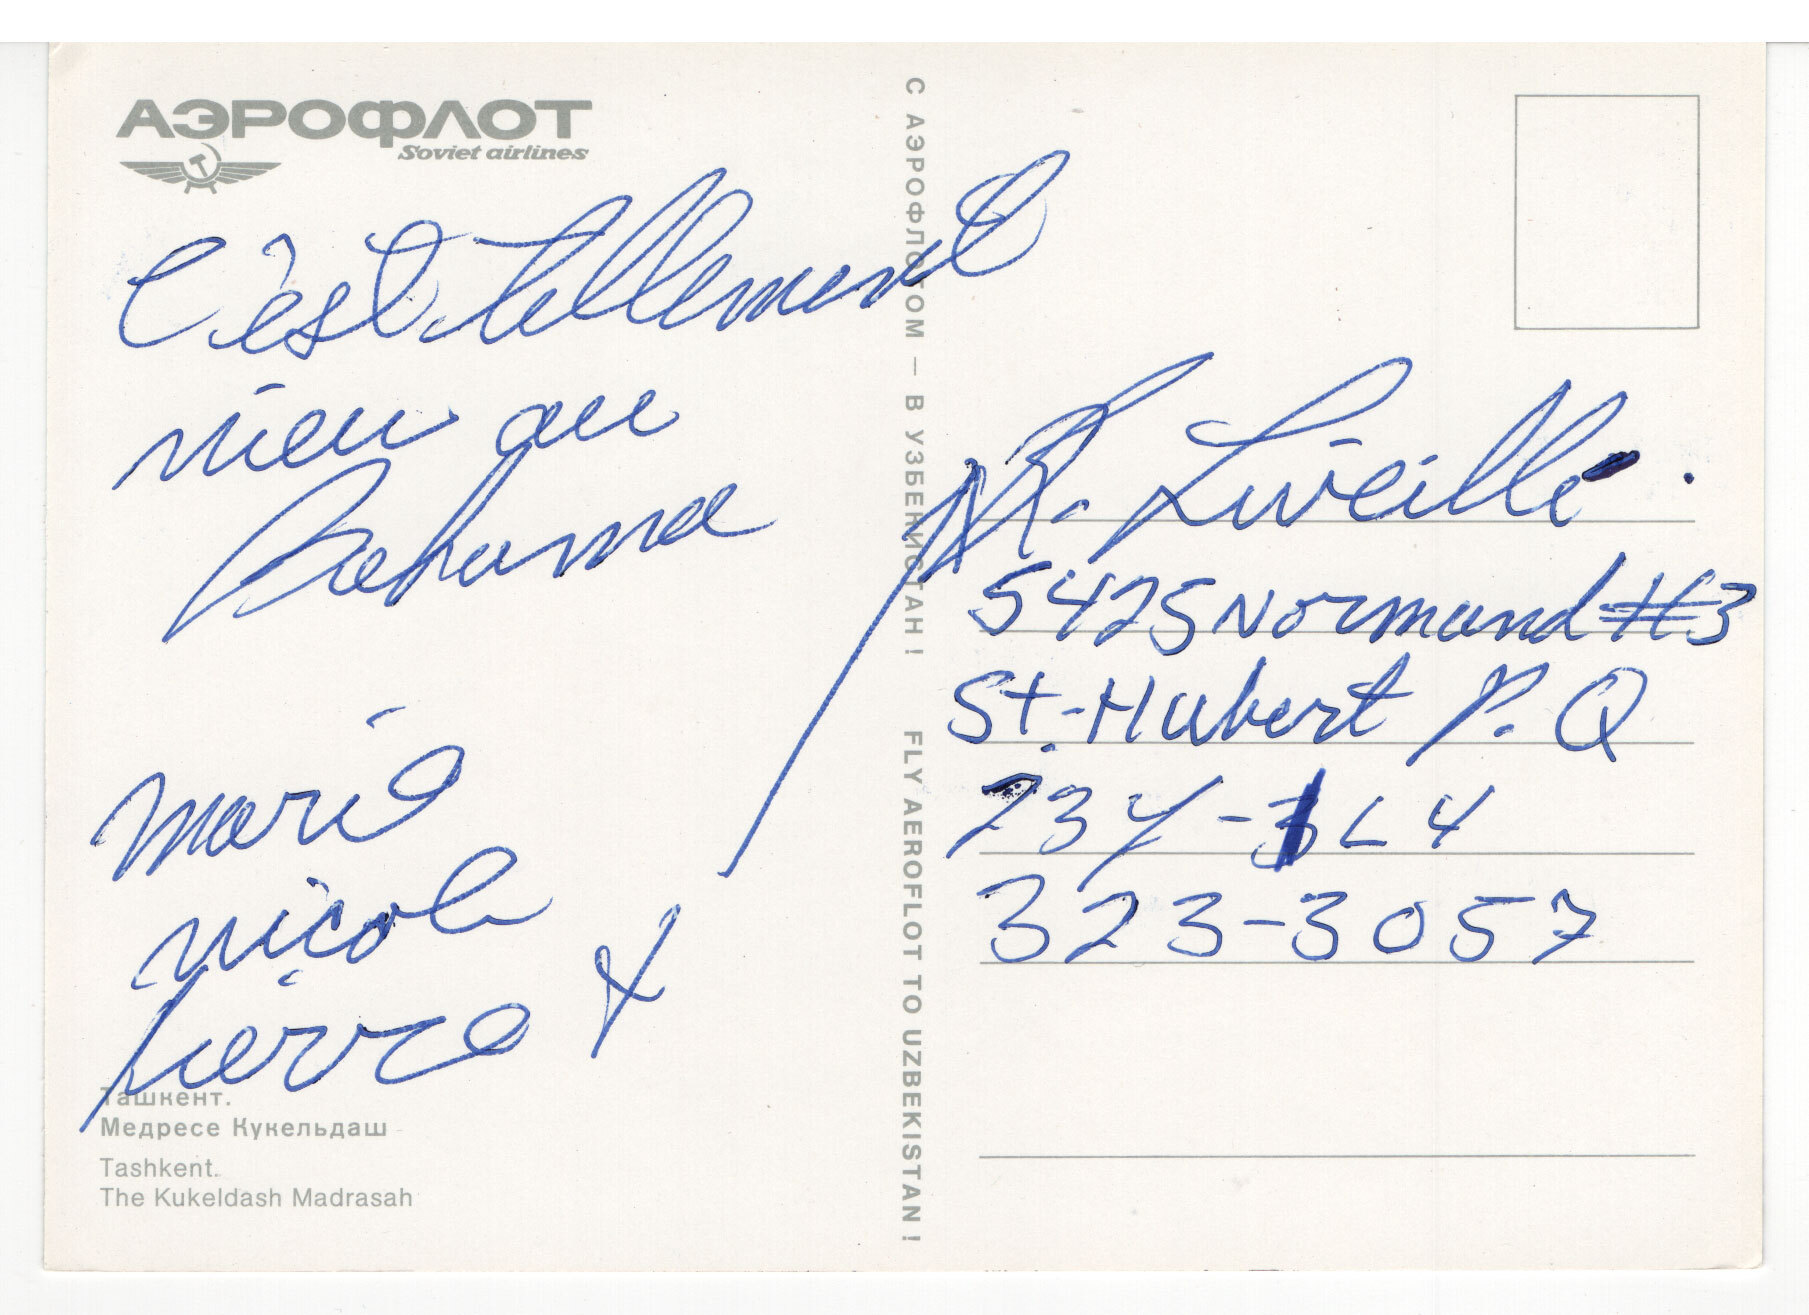 АЭРОФЛОТ
Soviet airlines
C'est tellement
mieu au
Bahama
Marie
nicole
pierre X
Ташкент.
Медресе Кукельдаш
Tashkent.
The Kukeldash Madrasah
С АЭРОФЛОТОМ — В УЗБЕКИСТАН! FLY AEROFLOT TO UZBEKISTAN!
R. Liveillé.
5425 Normand #3
St-Hubert P.Q
L4
323-3057